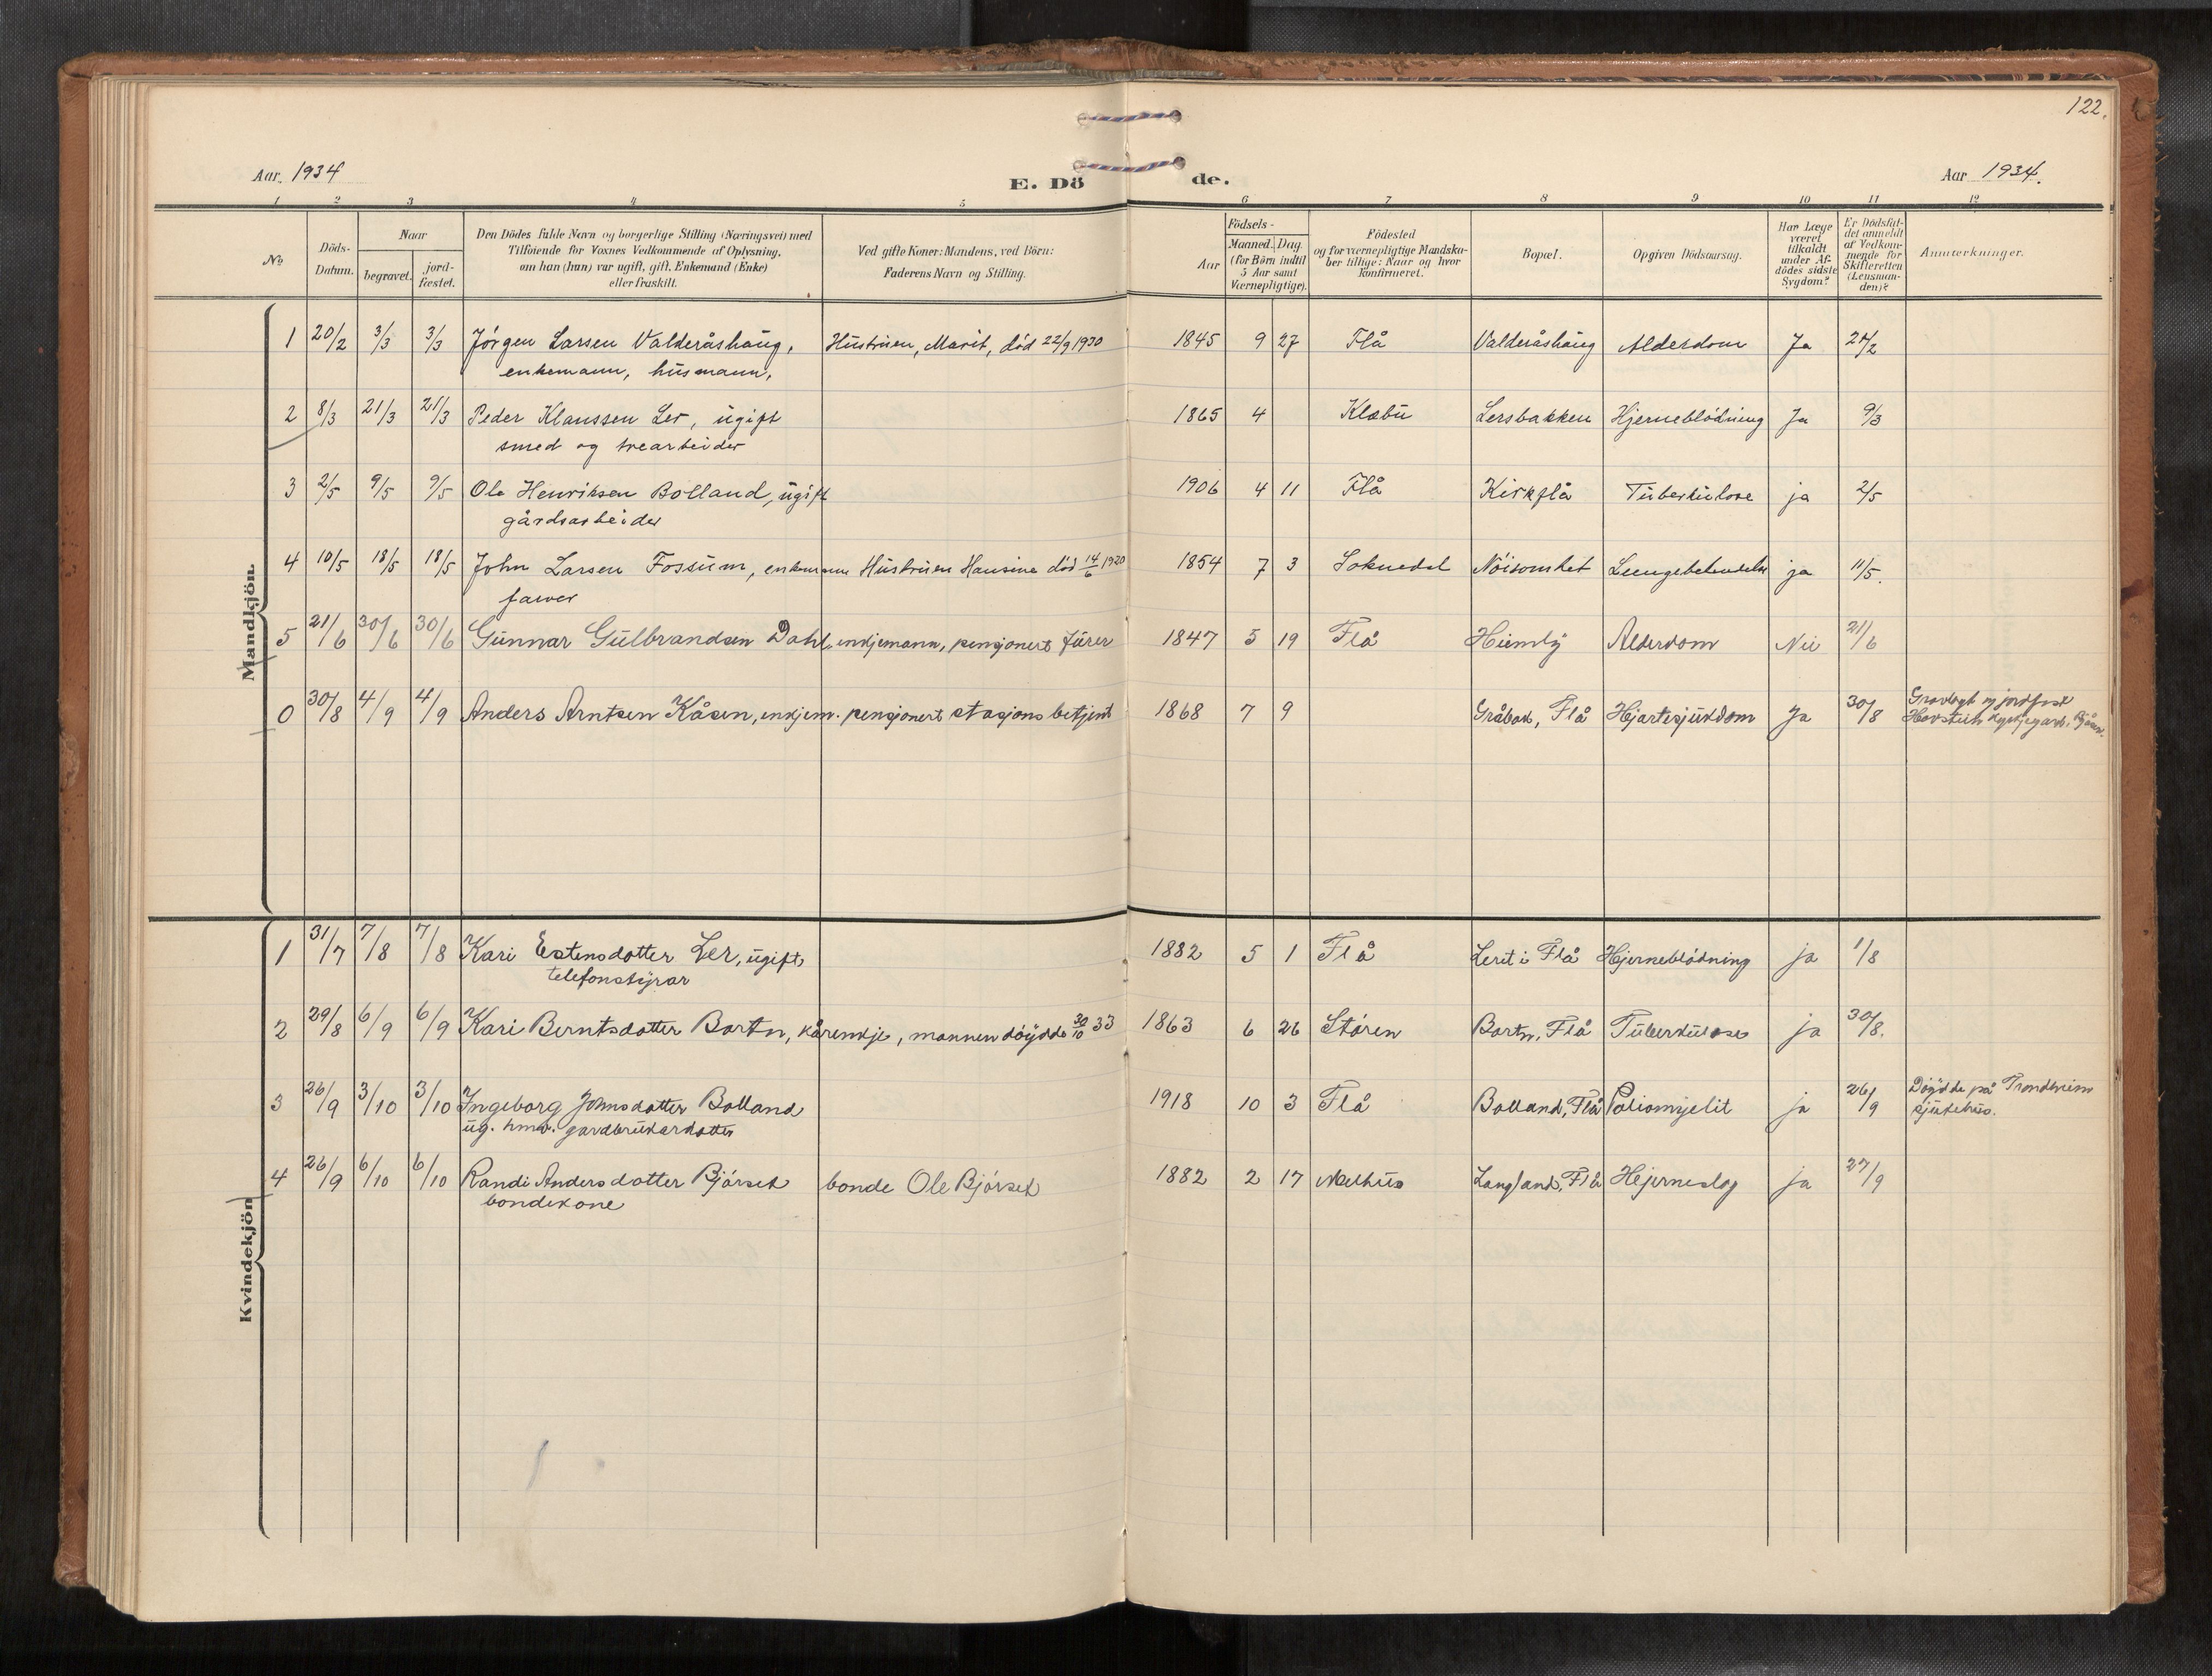 122.
Aar. 1934
E. Dö de.
Aar 1934.
1 2 3 4 5 6 7 8 9 10 11 12
No
Döds-
Datum.
Naar
begravet.
jord-
fæstet.
Den Dödes fulde Navn og borgerlige Stilling (Næringsvei) med
Tilföiende for Voxnes Vedkommende af Oplysning,
om han (hun) var ugift, gift, Enkemand (Enke)
eller fraskilt.
Ved gifte Koner: Mandens, ved Börn:
Faderens Navn og Stilling.
Födsels-
Aar
Maaned. Dag.
(for Børn indtil
5 Aar samt
Værnepligtige).
Födested
og for værnepligtige Mandska-
ber tillige: Naar og hvor
konfirmeret.
Bopæl.
Opgiven Dödsaarsag.
Har Læge
været
tilkaldt
under Af-
dödes sidste
Sygdom?
Er Dödsfal-
det anmeldt
af Vedkom-
mende for
Skifteretten
(Lensman-
den)?
Anmærkninger.
Mandkjön.
1 20/2 3/3 3/3 Jörgen Larsen Valderåshaug, Hustruen, Marit, död 22/9 1930 1845 9 27 Flå Valderåshaug Alderdom Ja 21/2
enkemann, husmann,
2 8/3 21/3 21/3 Peder Klaussen Ler, ugift 1865 4 Klæbu Lersbakken Hjerneblödning Ja 9/3
smed og trearbeider
3 2/5 9/5 9/5 Ole Henriksen Bolland, ugift 1906 4 11 Flå Kirkflå Tuberkulose ja 2/5
gårdsarbeider
4 10/5 18/5 18/5 John Larsen Fossum, enkemann Hustruen Hansine död 14/6 1920 1854 7 3 Soknedal Nöisomhet Lungebetendelse ja 11/5.
farver
5 21/6 30/6 30/6 Gunnar Gulbrandsen Dahl, enkjemann, pensjonert furer 1847 5 19 Flå Heimly Alderdom Nei 21/6
0 30/8 4/9 4/9 Anders Arntsen Kåsen, enkjem. pensjonert stasjonsbetjent 1868 7 9 Gråbak, Flå Hjartesjukdom Ja 30/8 Gravlagt og jordfest
Havstein kyrkjegard,
Kvindekjön
1 31/7 7/8 7/8 Kari Estensdotter Ler, ugift, 1882 5 1 Flå Leret i Flå Hjerneblödning ja 1/8
telefonstyrar
2 29/8 6/9 6/9 Kari Berntsdotter Bortn, kårenkje, mannen döydde 30/10 33 1863 6 26 Stören Bortn, Flå Tuberkulose ja 30/8.
3 26/9 3/10 3/10 Ingeborg Johnsdotter Bolland 1918 10 3 Flå Bolland, Flå Poliomyelit ja 26/9 Döydde på Trondheim
ug. hmv. gardbrukardotter sjukehus.
4 26/9 6/10 6/10 Randi Andersdotter Bjørset bonde Ole Bjørset 1882 2 17 Melhus Langland, Flå Hjerneslag ja 27/9
bondekone